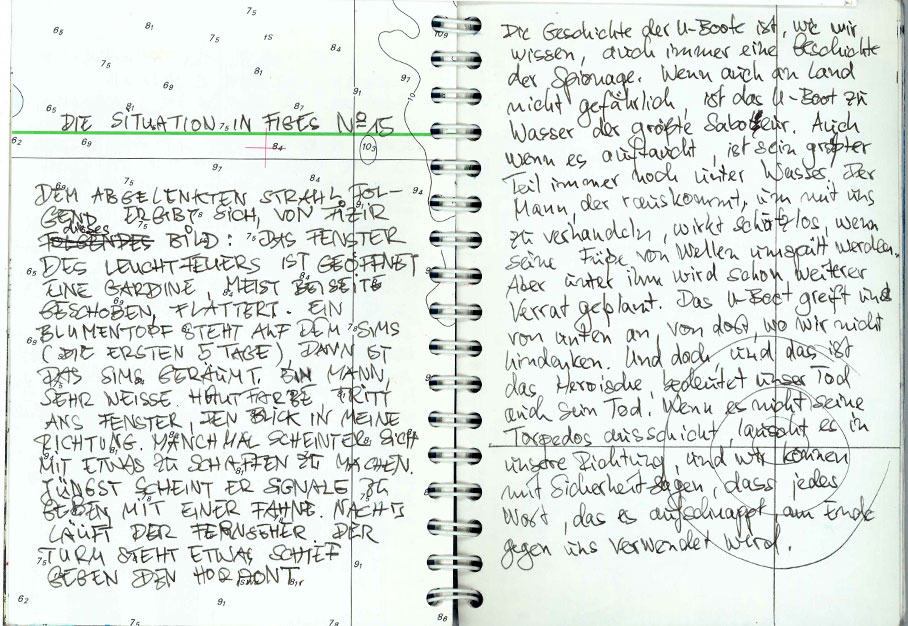 DIE SITUATION IN FIGES No 15
DEM ABGELENKTEN STRAHL FOL-
GEND ERGIBT SICH, VON
dieses
FOLGENDES BILD: DAS FENSTER
DES LEUCHTFEUERS IST GEÖFFNET
EINE GARDINE, MEIST BEISEITE
GESCHOBEN, FLATTERT. EIN
BLUMENTOPF STEHT AUF DEM SIMS
(DIE ERSTEN 5 TAGE), DANN IST
DAS SIMS GERÄUMT. EIN MANN,
SEHR WEISSE HAUTFARBE TRITT
ANS FENSTER, DEN BLICK IN MEINE
RICHTUNG. MANCHMAL SCHEINT ER SICH
MIT ETWAS ZU SCHAFFEN ZU MACHEN.
JÜNGST SCHEINT ER SIGNALE ZU
GEBEN MIT EINER FAHNE. NACHTS
LÄUFT DER FERNSEHER. DER
TURM STEHT ETWAS SCHIEF
GEGEN DEN HORIZONT
Die Geschichte der U-Boote ist, wie wir
wissen, auch immer eine Geschichte
der Spionage. Wenn auch an Land
nicht gefährlich, ist das U-Boot zu
Wasser der größte Saboteur. Auch
wenn es auftaucht, ist sein größter
Teil immer noch unter Wasser. Der
Mann, der rauskommt, um mit uns
zu verhandeln, wirkt schutzlos, wenn
seine Füße von Wellen umspült werden.
Aber unter ihm wird schon weiterer
Verrat geplant. Das U-Boot greift uns
von unten an, von dort, wo wir nicht
hindenken. Und doch und das ist
das Heroische, bedeutet unser Tod
auch sein Tod. Wenn es nicht seine
Torpedos ausschickt, lauscht es in
unsere Richtung, und wir können
mit Sicherheit sagen, dass jedes
Wort, das es aufschnappt am Ende
gegen uns verwendet wird.